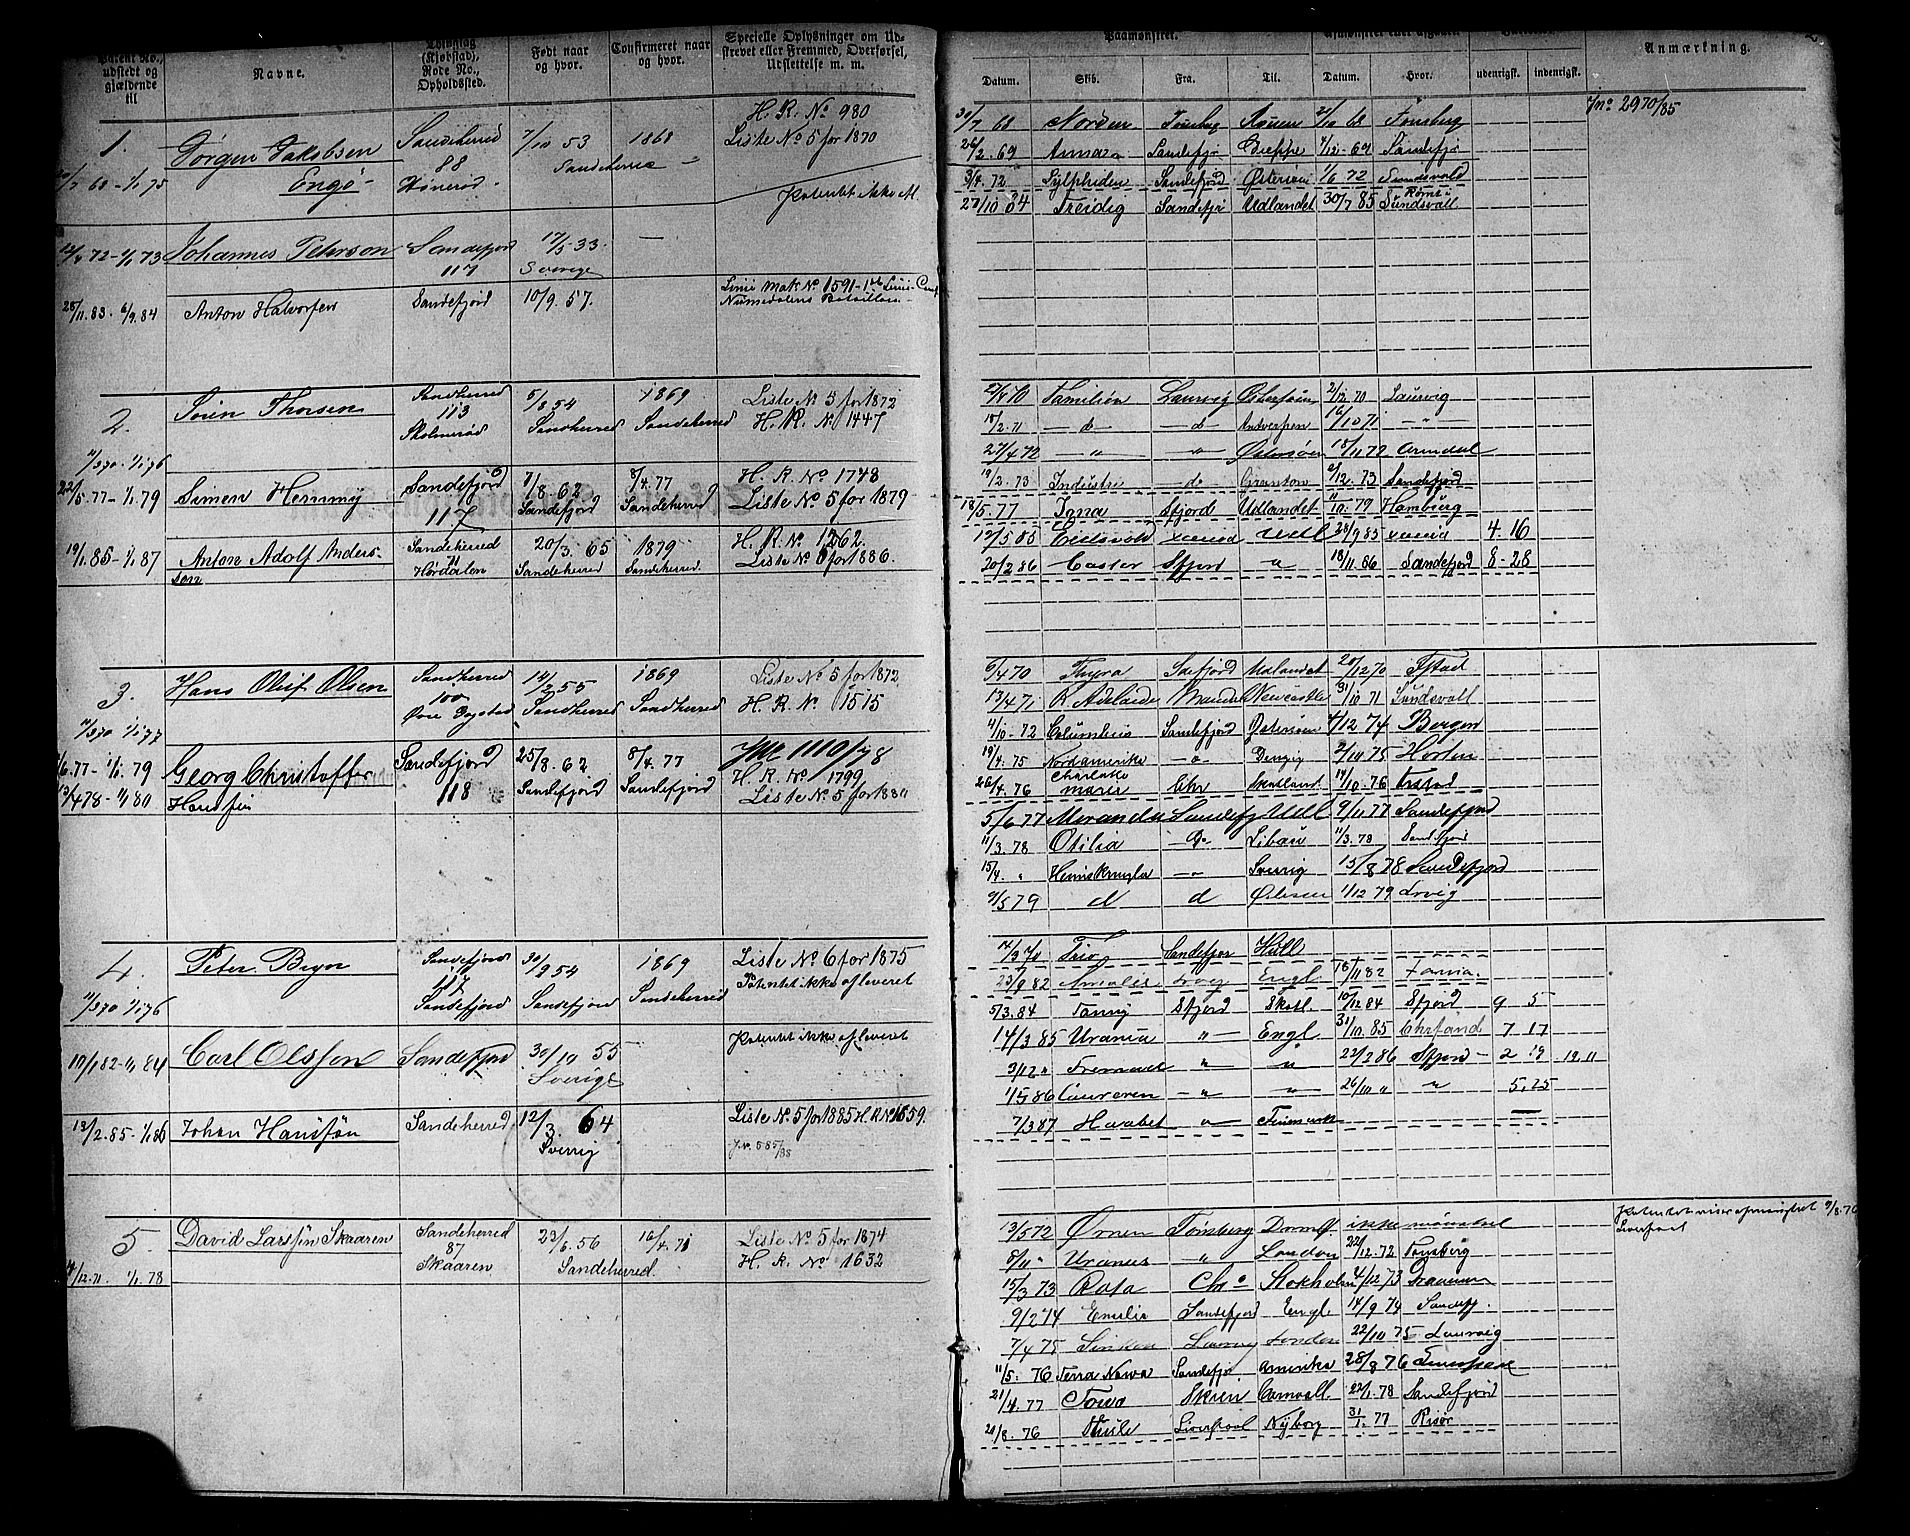 Patent No., udstedt og gjældende til | Navne. | Thinglag (Kjøbstad), Rode No., Opholdssted. | Født naar og hvor. | Confirmeret naar og hvor. | Specielle Oplysninger om Udskrevet eller Fremmed, Overførsel, Udslettelse m. m.
1. | Jørgen Jakobsen Engø | Sandeherred 88 | 7/10 53 Sandeherred | 1868 | H. R. No 980 Liste No 5 for 1870
Patentet ikke afl.
12/4 72 - 1/1 73 | Johannes Peterson | Sandefjord 117 | 17/5 33. Sverige | —
28/11. 83 - 6/9. 84 | Anton Halvorsen | Sandefjord | 10/9. 57. | Linie Mdk No 1591 - Numedalens Bataillon
2. | Søren Thorsen | Sandherred 113 | 5/8 54 Sandherred | 1869 Sandeherred | Liste No 5 for 1872 H. R. No 1447
11/3 70 - 1/1 76
22/5. 77 - 1/1. 79 | Simen Hemmy | Sandefjord 117 | 7/8. 62 Sandefjord | 8/4. 77 Sandeherred | H. R. No 1748 Liste No 5 for 1879
19/1. 85 - 1/1 87 | Anton Adolf Andersson | Sandeherred | 20/3. 65 Sandeherred | 1879 Sandeherred. | H. R. No 1262. Liste No 6 for 1886.
3. | Hans Oluf Olsen | Sandherred 100 | 14/2 55 Sandherred | 1869 Sandherred | Liste No 5 for 1872 H. R. No 1515
11/3 70 1/1 77
1/6. 77 - 1/1. 79 | Georg Christoffer Hansen | Sandefjord 118 | 25/8. 62 Sandefjord | 8/4. 77 Sandefjord | JNo 1110/78 H. R. No 1799 Liste No 5 for 1880
13/4 78 - 1/1 80
4. | Peter Bryn | Sandefjord 117 Sandefjord | 30/9 54 Sandefjord | 1869 Sandeherred | Liste No 6 for 1875 Patentet ikke afleveret
11/3 70 1/1 76
10/1 82 - 1/1 84 | Carl Olsson | Sandefjord | 30/10 55 Sverige | Patentet ikke afleveret
18/2. 85 - 1/1 86 | Johan Hansen | Sandeherred | 12/3. 64 Sverrig | Liste No 5 for 1885 H. R. No 1859. J. No. 585/88
5. | David Larssen Skaaren | Sandeherred 87 Skaaren | 23/6. 56 Sandeherred | 16/4. 71 | Liste No 5 for 1874 H. R. No 1632
14/12. 71. 1/1. 78
Paamønstret. | Anmærkning.
Datum. | Skib. | Fra. | Til. | Datum. | Hvor. | udenrigsk. | indenrigsk.
30/7 68 | Norden | Tønsberg | Rouen | 21/10 68 | Tønsberg | J No 2970/85
26/2. 69 | Anna | Sandefj | Dieppe | 4/12 - 69 | Sandefj
3/4. 72 | Sylphiden | Sandefjord | Østersøen | 1/6 72 | Sundsvald
27/10 84 | Freidig | Sandefj | Udlandet | 30/7 85 | Rømt i Sundsvall
2/4 70 | Familien | Laurvig | Østersøen | 2/12. 70 | Laurvig
18/2. 71 | do | do | Antwerpen | 16/10 71 | "
27/4 72 | " | " | Østersøen | 18/11 72 | Arendal
19/2. 73 | Industri | do | Granton | 9/12. 73 | Sandefjord
18/5. 77 | Jona | Sfjord | Udlandet | 11/10. 79 | Hamburg
12/5 85 | Eidsvold | Xania | Udl | 28/9 85 | Xania | 4 - 16
20/2 86 | Castor | Sfjord | " | 18/11. 86 | Sandefjord | 8 - 28
6/4 70 | Thyra | Safjord | Udlandet | 20/12 70 | Ystad
13/4 71 | R. Adelaide | Mandal | Newcastle | 31/10 71 | Sundsvall
4/10 - 72 | Columbus | Sandefjord | Østersøen | 4/12 74 | Bergen
19/4. 75 | Nordamerika | " | Danzig | 2/10 75 | Horten
26/4. 76 | Charlotte Marie | Chr | Skotland | 14/10. 76 | Ystad
5/6 77 | Miranda | Sandefj | Udl | 9/11. 77 | Sandefjord
11/3. 78 | Otilia | Do | Libau | 11/3. 78 | Sandefjord
15/4. " | Heimskringla | " | Sverrig | 15/8 78 | Sandefjord
9/5 79 | d | d | Østersøen | 1/12 79 | Lrvig
14/3 70 | Trio | Sandefjor | Holl
23/9 82 | Amalie | Lrvg | Engl | 18/11 82 | Xania
5/3. 84 | Fanny | Sfjord | Skotl. | 10/12 84 | Sfjord | 9 5
14/3 85 | Urania | " | Engl | 31/10. 85 | Chrsand | 7 17
3/12 " | Fremad | " | " | 22/9 86 | Sfjord | 2 19 | 12 11
1/5 86 | Lauraren | " | " | 26/10 " | " | 5. 25
7/3 87 | Haabet | " | Finmark
13/5 72 | Ørnen | Tønsberg | ikke mønstret | Patentet viser afmønstret 9/8. 76 Liverpool
8/11 " | Uranus | " | London | 22/12. 72 | Tønsberg
15/3 73 | Rota | Chra | Stokholm | 4/12 73 | Drammen
9/2 74 | Emilie | Sandefjord | Engl | 14/9 74 | Sandefj.
7/4 75 | Larvig | London | 22/10 75 | Laurvig
11/5. 76 | Terra Nova | Sandefjo | Amerika | 28/8 76
21/4. 77 | Skien | Cornwall. | 22/1. 78 | Sandefjord
21/8. 76 | Thisle | Liverpool | Nyborg | 31/1. 77 | Risør